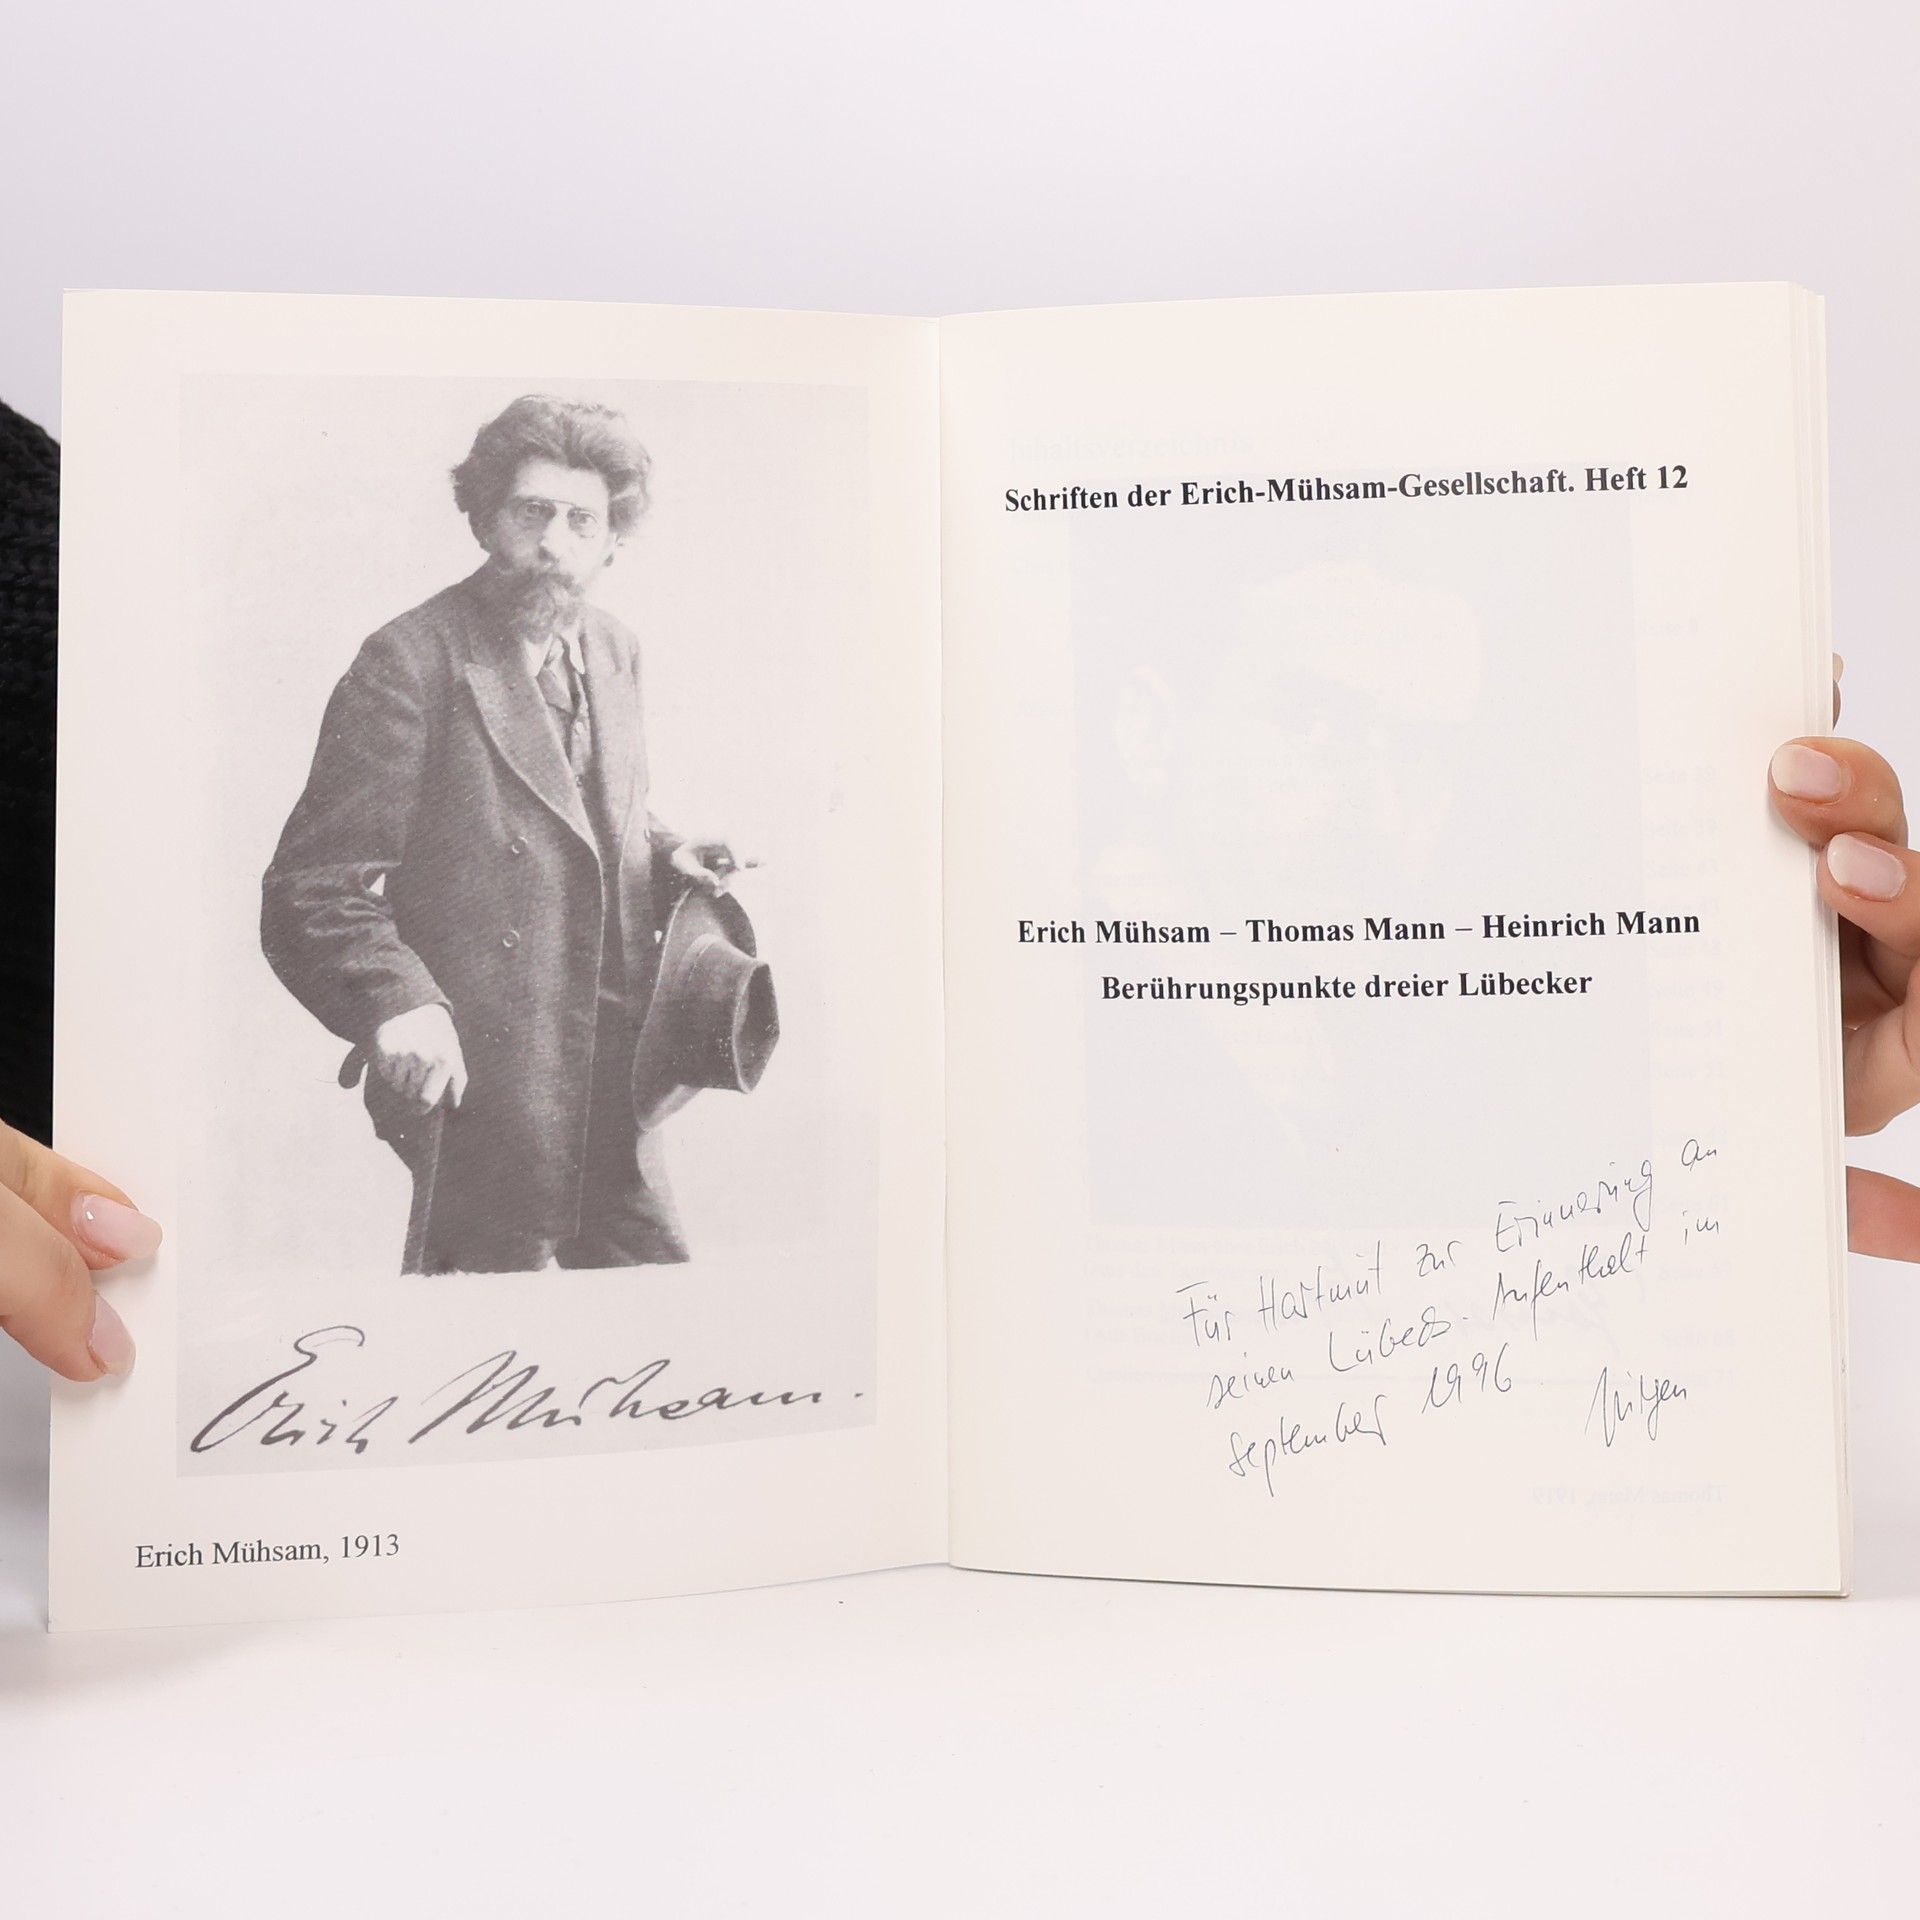 Erich Mühsam.
Erich Mühsam, 1913
Schriften der Erich-Mühsam-Gesellschaft. Heft 12
Erich Mühsam – Thomas Mann – Heinrich Mann
Berührungspunkte dreier Lübecker
Für Hartmut zur Erinnerung an
seinen Lübeck-Aufenthalt im
September 1996
Jürgen
Inhaltsverzeichnis
Thomas Mann, 1919